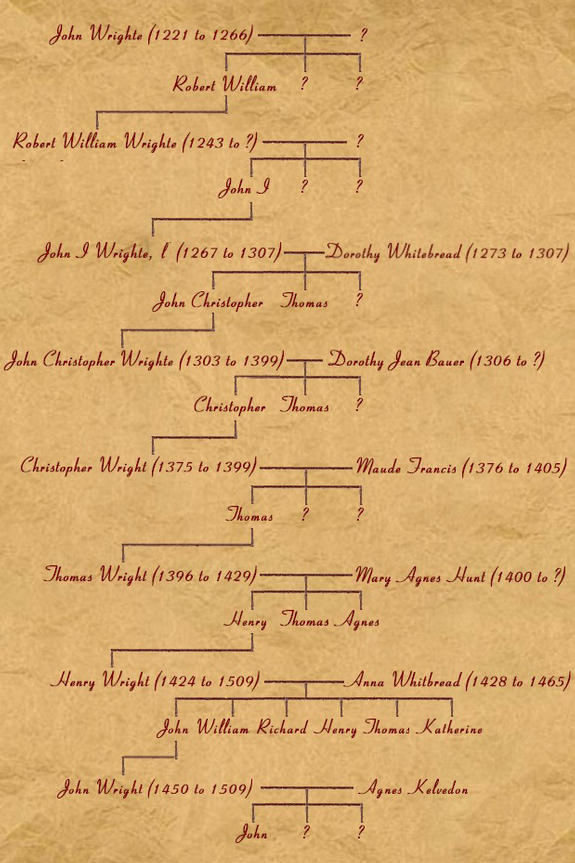 John Wrighte (1221 to 1266) ?
Robert William ? ?
Robert William Wrighte (1243 to ?) ?
John I ? ?
John I Wrighte, l (1267 to 1307) Dorothy Whitebread (1273 to 1307)
John Christopher Thomas ?
John Christopher Wrighte (1303 to 1399) Dorothy Jean Bauer (1306 to ?)
Christopher Thomas ?
Christopher Wright (1375 to 1399) Maude Francis (1376 to 1405)
Thomas ? ?
Thomas Wright (1396 to 1429) Mary Agnes Hunt (1400 to ?)
Henry Thomas Agnes
Henry Wright (1424 to 1509) Anna Whitbread (1428 to 1465)
John William Richard Henry Thomas Katherine
John Wright (1450 to 1509) Agnes Kelvedon
John ? ?